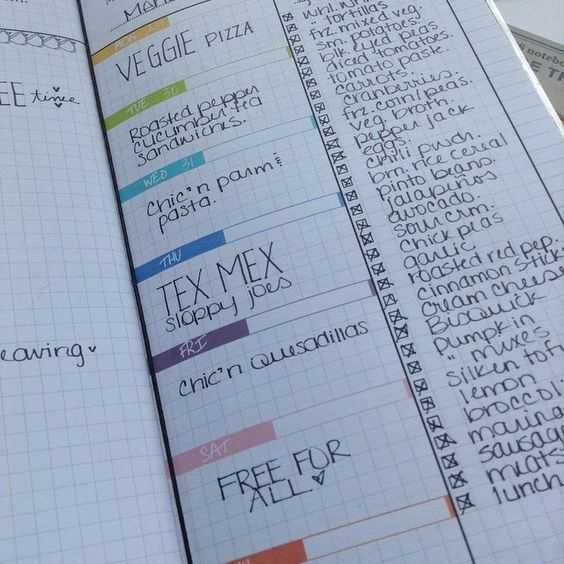 EE time
eaving
MON
VEGGIE PIZZA
TUE 30
Roasted pepper
cucumber tea
sandwiches.
WED 31
Chic'n parm &
pasta.
THU
TEX MEX
sloppy joes
FRI
Chic'n Quesadillas
SAT
FREE FOR
ALL
tortillas
frz. mixed veg.
sm. potatoes.
blk eyed peas
diced tomatoes.
tomato paste.
carrots.
cranberries.
frz. corn/peas.
veg. broth.
pepper jack
eggs.
chili pwdr.
brn. rice cereal
pinto beans.
jalapeños
avocado.
sour crm.
chick peas
garlic
roasted red pep.
cinnamon stick
cream cheese
Bisquick
pumpkin
" mixes
silken tofu
lemon
broccoli
marina
sausage
meats
lunch
notebo
E TH